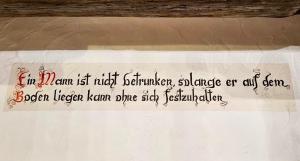 Ein Mann ist nicht betrunken, solange er auf dem
Boden liegen kann ohne sich festzuhalten